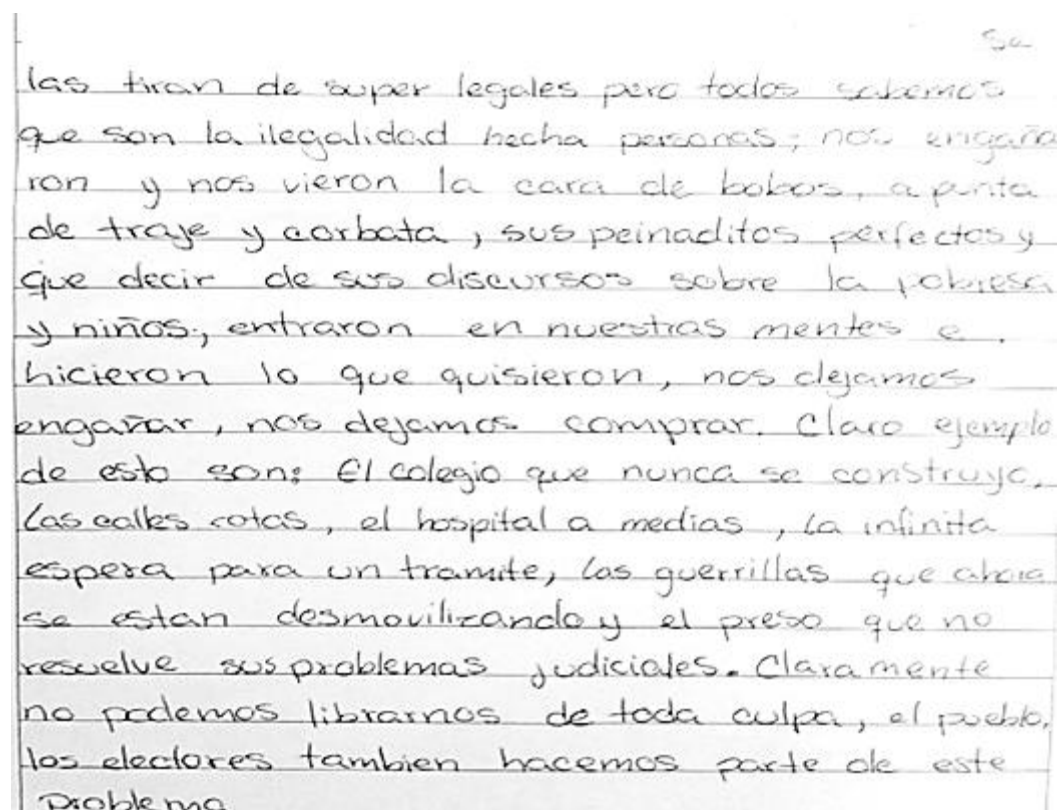 Se
las tiran de super legales pero todos sabemos
que son la ilegalidad hecha personas; nos engaña
ron y nos vieron la cara de bobos, a punta
de traje y corbata, sus peinaditos perfectos y
que decir de sus discursos sobre la pobresa
y niños; entraron en nuestras mentes e
hicieron lo que quisieron, nos dejamos
engañar, nos dejamos comprar. Claro ejemplo
de esto son: El colegio que nunca se construyo,
Las calles rotas, el hospital a medias, La infinita
espera para un tramite, Las guerrillas que ahora
se estan desmovilizando y el preso que no
resuelve sus problemas judiciales. Claramente
no podemos librarnos de toda culpa, el pueblo,
los electores tambien hacemos parte de este
problema